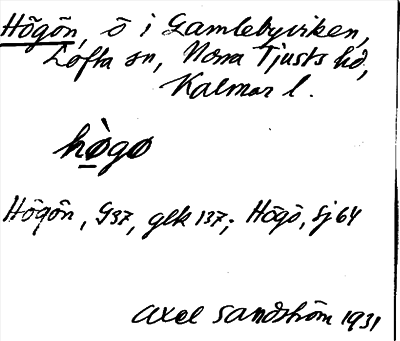 Högön, ö i Gamlebyviken,
Lofta sn, Norra Tjusts hd,
Kalmar l.
hògo
Högön, G37, glk 137; Högö, Sj 64
Axel Sandström 1931